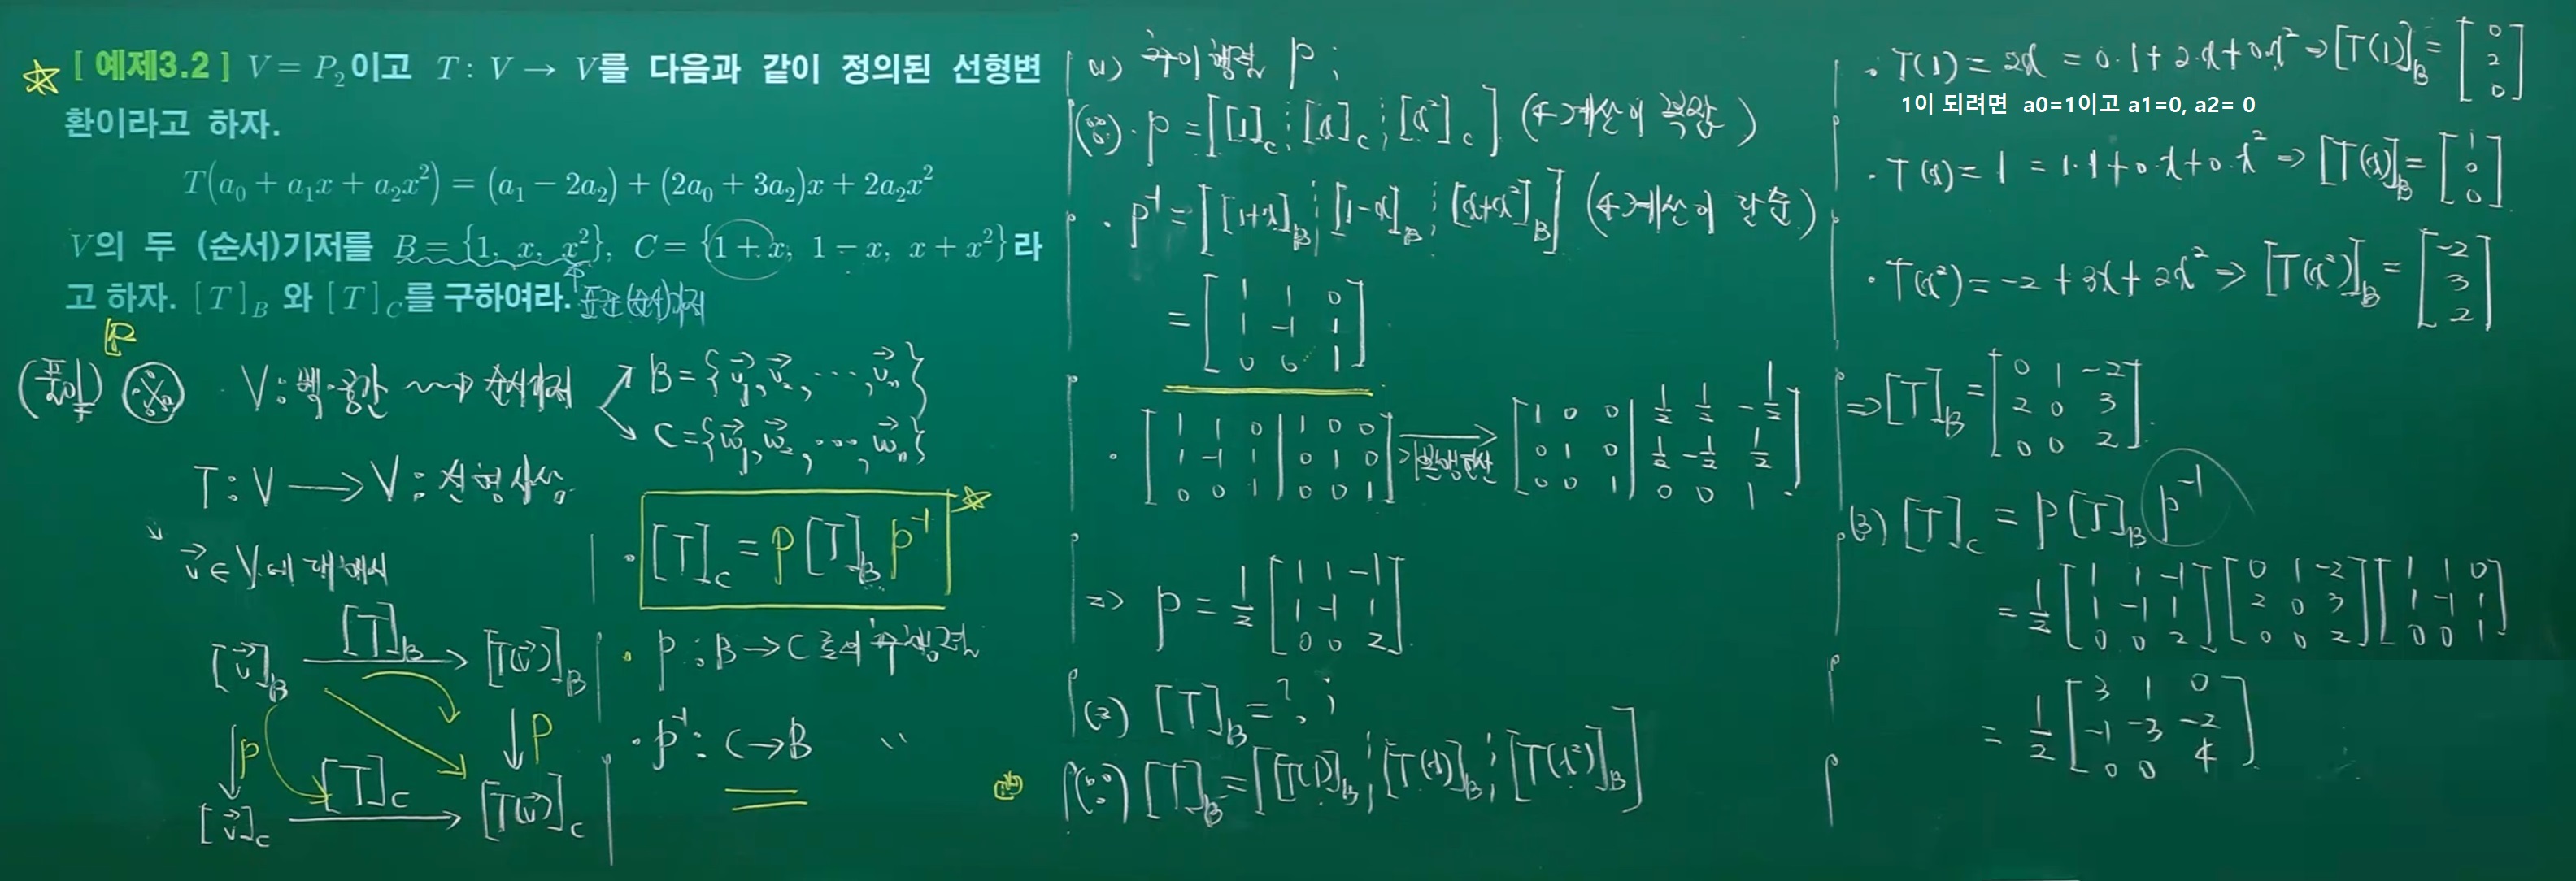 ☆ [ 예제3.2 ] V = P₂이고 T : V → V를 다음과 같이 정의된 선형변
환이라고 하자.
T(a₀ + a₁x + a₂x²) = (a₁ − 2a₂) + (2a₀ + 3a₂)x + 2a₂x²
V의 두 (순서)기저를 B = {1, x, x²}, C = {1 + x, 1 − x, x + x²}라
고 하자. [T]_B 와 [T]_C를 구하여라. 표준(순서)기저
P
(풀이) · V : 벡·공간 ⇝ 순서기저
B = {v⃗₁, v⃗₂, ⋯, v⃗ₙ}
C = {w⃗₁, w⃗₂, ⋯, w⃗ₙ}
T : V → V : 선형사상
v⃗ ∈ V에 대해서
[v⃗]_B [T]_B → [T(v⃗)]_B
↓P ↓P
[v⃗]_C [T]_C → [T(v⃗)]_C
· [T]_C = P [T]_B P⁻¹ ☆
· P : B → C 로의 추이행렬
· P⁻¹ : C → B 〃
(1) 추이행렬 P ;
(∵) · P = [[1]_C ⋮ [x]_C ⋮ [x²]_C] (← 계산이 복잡)
· P⁻¹ = [[1+x]_B ⋮ [1−x]_B ⋮ [x+x²]_B] (← 계산이 단순)
= [1 1 0
1 −1 1
0 0 1]
· [1 1 0 | 1 0 0 → [1 0 0 | 1/2 1/2 −1/2
1 −1 1 | 0 1 0 기본행연산 0 1 0 | 1/2 −1/2 1/2
0 0 1 | 0 0 1] 0 0 1 | 0 0 1]
⇒ P = 1/2 [1 1 −1
1 −1 1
0 0 2]
(2) [T]_B = ? ;
(∵) [T]_B = [[T(1)]_B ⋮ [T(x)]_B ⋮ [T(x²)]_B]
· T(1) = 2x = 0·1 + 2·x + 0·x² ⇒ [T(1)]_B = [0
2
0]
1이 되려면 a0=1이고 a1=0, a2= 0
· T(x) = 1 = 1·1 + 0·x + 0·x² ⇒ [T(x)]_B = [1
0
0]
· T(x²) = −2 + 3x + 2x² ⇒ [T(x²)]_B = [−2
3
2]
⇒ [T]_B = [0 1 −2
2 0 3
0 0 2]
(3) [T]_C = P [T]_B P⁻¹
= 1/2 [1 1 −1 [0 1 −2 [1 1 0
1 −1 1 2 0 3 1 −1 1
0 0 2] 0 0 2] 0 0 1]
= 1/2 [3 1 0
−1 −3 −2
0 0 4]